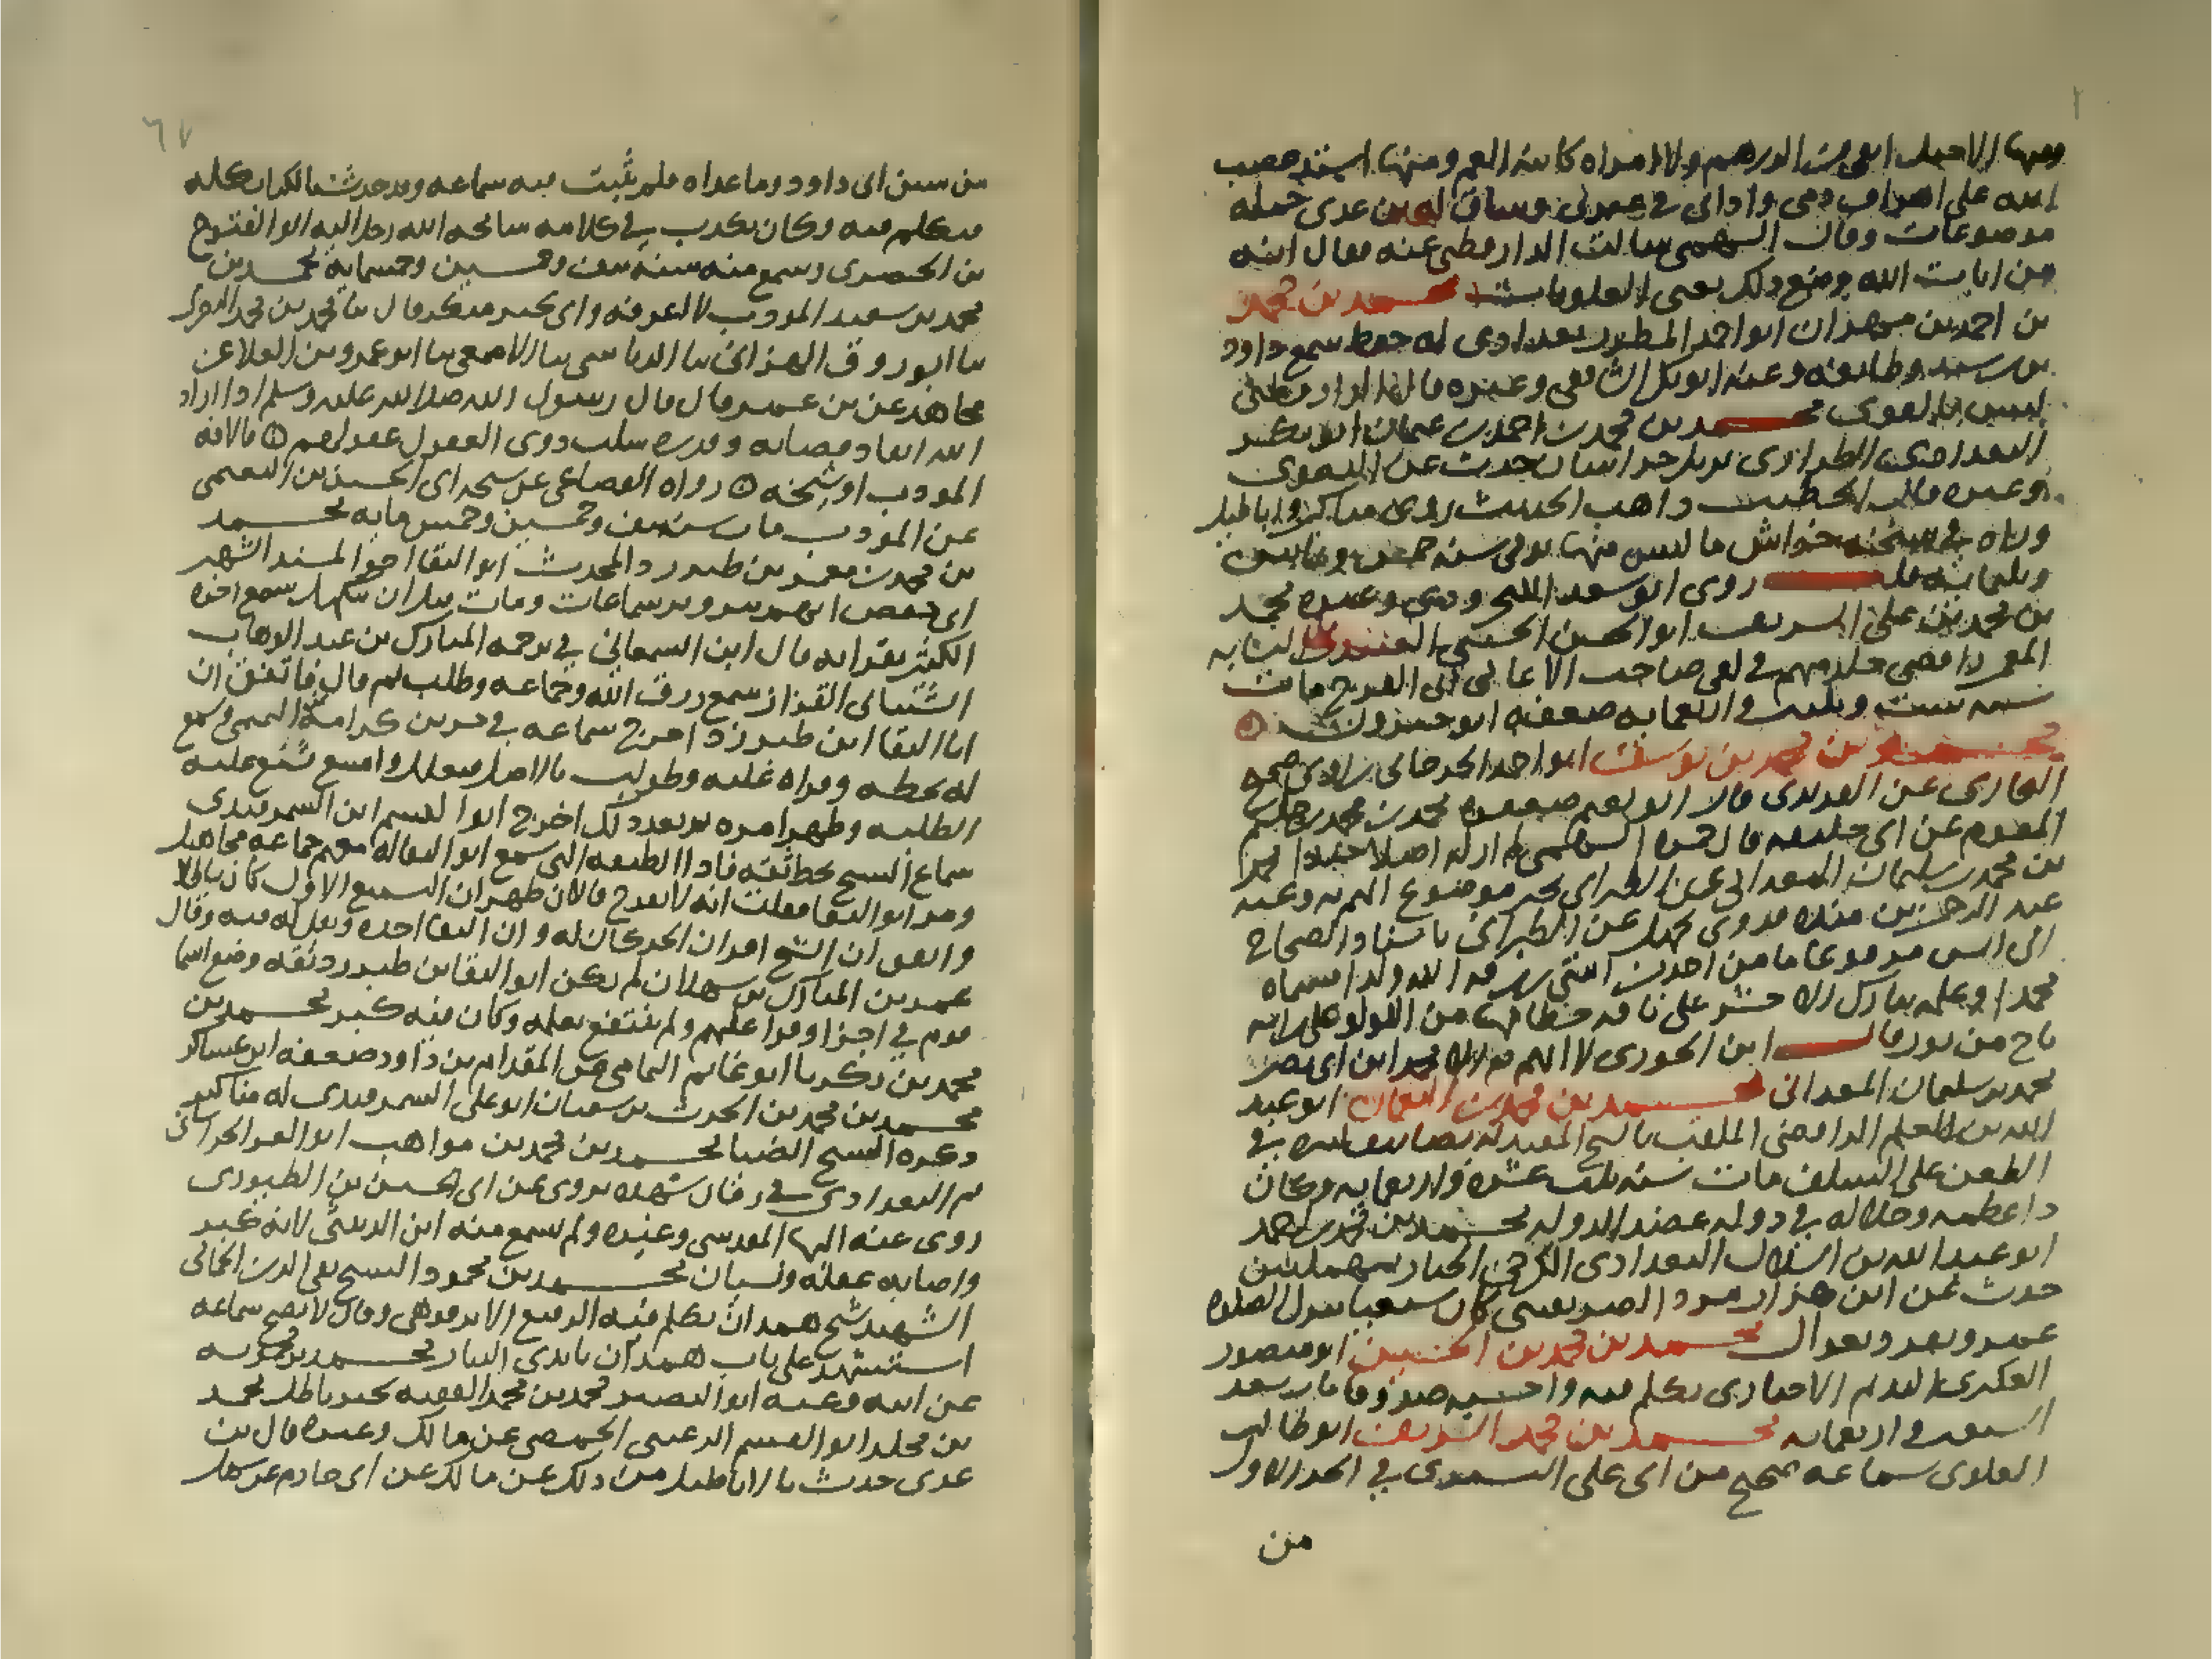 ومنها لا خيل ابقى من الدهم ولا امراه كابنه العم ومنها اشتد غضب
الله على من اهراق دمي واذاني في عترتي وساق له بن عدي جمله
موضوعات وقال السهمي سالت الدارقطني عنه فقال ايه
من ايات الله وضع ذلك يعني العلويات محمد بن محمد
بن احمد بن مهران ابو احمد المطرز بغدادي له حفظ سمع داود
بن رشيد وطايفه وعنه ابو بكر الشافعي وغيره قال الدارقطني
ليس بالقوي محمد بن محمد بن احمد بن عثمان ابو بكر
البغدادي الطرازي نزيل خراسان حدث عن البغوي
وغيره قال الخطيب ذاهب الحديث روى مناكير واباطيل
وراه في نسخه خراش ما ليس منها توفي سنه خمس وثمانين
وثلمايه قلت روى ابو سعد الكنجرودي وعده محمد
بن محمد بن علي الشريف ابو الحسن الحسيني العبيدلي النسابه
المعمر رافضي جلد متهم في لقي صاحب الاغاني ابي الفرج مات
سنه ست وثلثين واربعمايه ضعفه ابو خيرون
محمد بن محمد بن يوسف ابو احمد الجرجاني راوي صحيح
البخاري عن الفربري قال ابو نعيم ضعفوه محمد بن محمد بن حكيم
المقوم عن ابي خليفه قال حمزه السهمي لم ار له اصلا جيدا محمد
بن محمد بن سليمان المعداني عن الطبراني بخبر موضوع اتهم به وعنه
عبد الرحمن بن منده فروى بجهل عن الطبراني باسناد الصحاح
الى انس مرفوعا ما من احد من امتي رزقه الله ولدا اسماه
محمدا وعلمه تبارك الا حشر على ناقه خطامها من اللولو على راسه
تاج من نور قال ابن الجوزي لا اتهم به الا محمد ابن ابي نصر
محمد بن سليمان المعداني محمد بن محمد بن النعمان ابو عبد
الله بن المعلم الرافضي الملقب بالشيخ المفيد له تصانيف كثيره في
الطعن على السلف مات سنه ثلث عشره واربعمايه وكان
ذا عظمه وجلاله في دوله عضد الدوله محمد بن محمد بن احمد
ابو عبد الله بن السلال البغدادي الكرخي الحبار بمهملتين
حدث عن ابن هزارمرد الصريفيني كان شيعيا يترك الصلاه
عمر وبعد وبغداد محمد بن محمد بن الحسين ابو منصور
العكبري النديم الاخباري تكلم فيه واحسبه صدوقا مات بعد
السبعين واربعمايه محمد بن محمد الشريف ابو طالب
العلوي سماعه صحيح من ابي علي التستري في الجزء الاول
من
من سنن ابي داود وما عداه فلم يثبت فيه سماعه وقد حدث بالكتاب كله
فتكلم فيه وكان يكذب في كلامه سامحه الله رحل اليه ابو الفتوح
بن الحصري وسمع منه سنه نيف وخمسين وخمسمايه محمد بن
محمد بن سعيد المؤدب لا اعرفه واتى بخبر منكر قال نا محمد بن محمد البصري
نا ابو روق الهزاني نا الرياشي نا الاصمعي نا ابو عمرو بن العلا عن
مجاهد عن بن عمر قال قال رسول الله صلى الله عليه وسلم اذا اراد
الله انفاذ قضايه وقدره سلب ذوي العقول عقولهم فالافه
المؤدب او شيخه رواه القضاعي عن شيخه ابي الحسن بن النعيمي
عن المؤدب مات سنه نيف وخمسين وخمس مايه محمد
بن محمد بن معمر بن طبرزد المحدث ابو البقا اخو المسند الشهير
ابي حفص اتهم بتزوير سماعات ومات بعد ان تكهل سمع اخوه
الكثير بقراءته قال ابن السمعاني في ترجمه المبارك بن عبد الوهاب
الشيباني القزاز سمع رزق الله وجماعه وطلب ثم قال فاتفق ان
ابا البقا ابن طبرزد اخرج سماعه في جزء من كرامه التميمي وسمع
له بخطه وقراه عليه وطولب بالاصل فتعلل وامتنع شنع عليه
الطلبه وظهر امره ثم بعد ذلك اخرج ابو القسم ابن السمرقندي
سماع الشيخ بخط ثقه فاذا الطبقه التي سمع ابو البقا له معهم جماعه مجاهيل
وفيها ابو البقا فقلت انه لا يفرح فالان ظهر ان التسميع الاول كان باطلا
واتفق ان الشيخ اقر ان الجزء كان له وان ابا البقا اخذه ونقل له فيه وقال
عمر بن المبارك بن سهلان لم يكن ابو البقا بن طبرزد ثقه وضع اسما
قوم في اجزا وقرا عليهم ولم ينتفع بعلمه وكان فيه كبر محمد بن
محمد بن زكريا ابو غانم اليمامي عن المقدام بن داود ضعفه ابن عساكر
محمد بن محمد بن الحرث بن سفيان ابو علي السمرقندي له مناكير
ذكره الشيخ الضيا محمد بن محمد بن مواهب ابو العز الخراساني
ثم البغدادي في رفاق شهده يروي عن ابي الحسين بن الطيوري
روى عنه البها المقدسي وغيره ولم يسمع منه ابن الدبيثي لانه تغير
واصابه غفله ونسيان محمد بن محمود الشيخ تقي الدين الحمامي
الشهيد شيخ همدان تكلم فيه الرفيع الابرقوهي وقال لا يصح سماعه
استشهد على باب همدان بايدي التتار محمد بن محمويه
عن ابيه وعنه ابو النضر محمد بن محمد الفقيه بخبر باطل محمد
بن مخلد ابو القسم الرعيني الحمصي عن مالك وغيره قال بن
عدي حدث بالاباطيل من ذلك عن مالك عن ابي حازم عن سهل